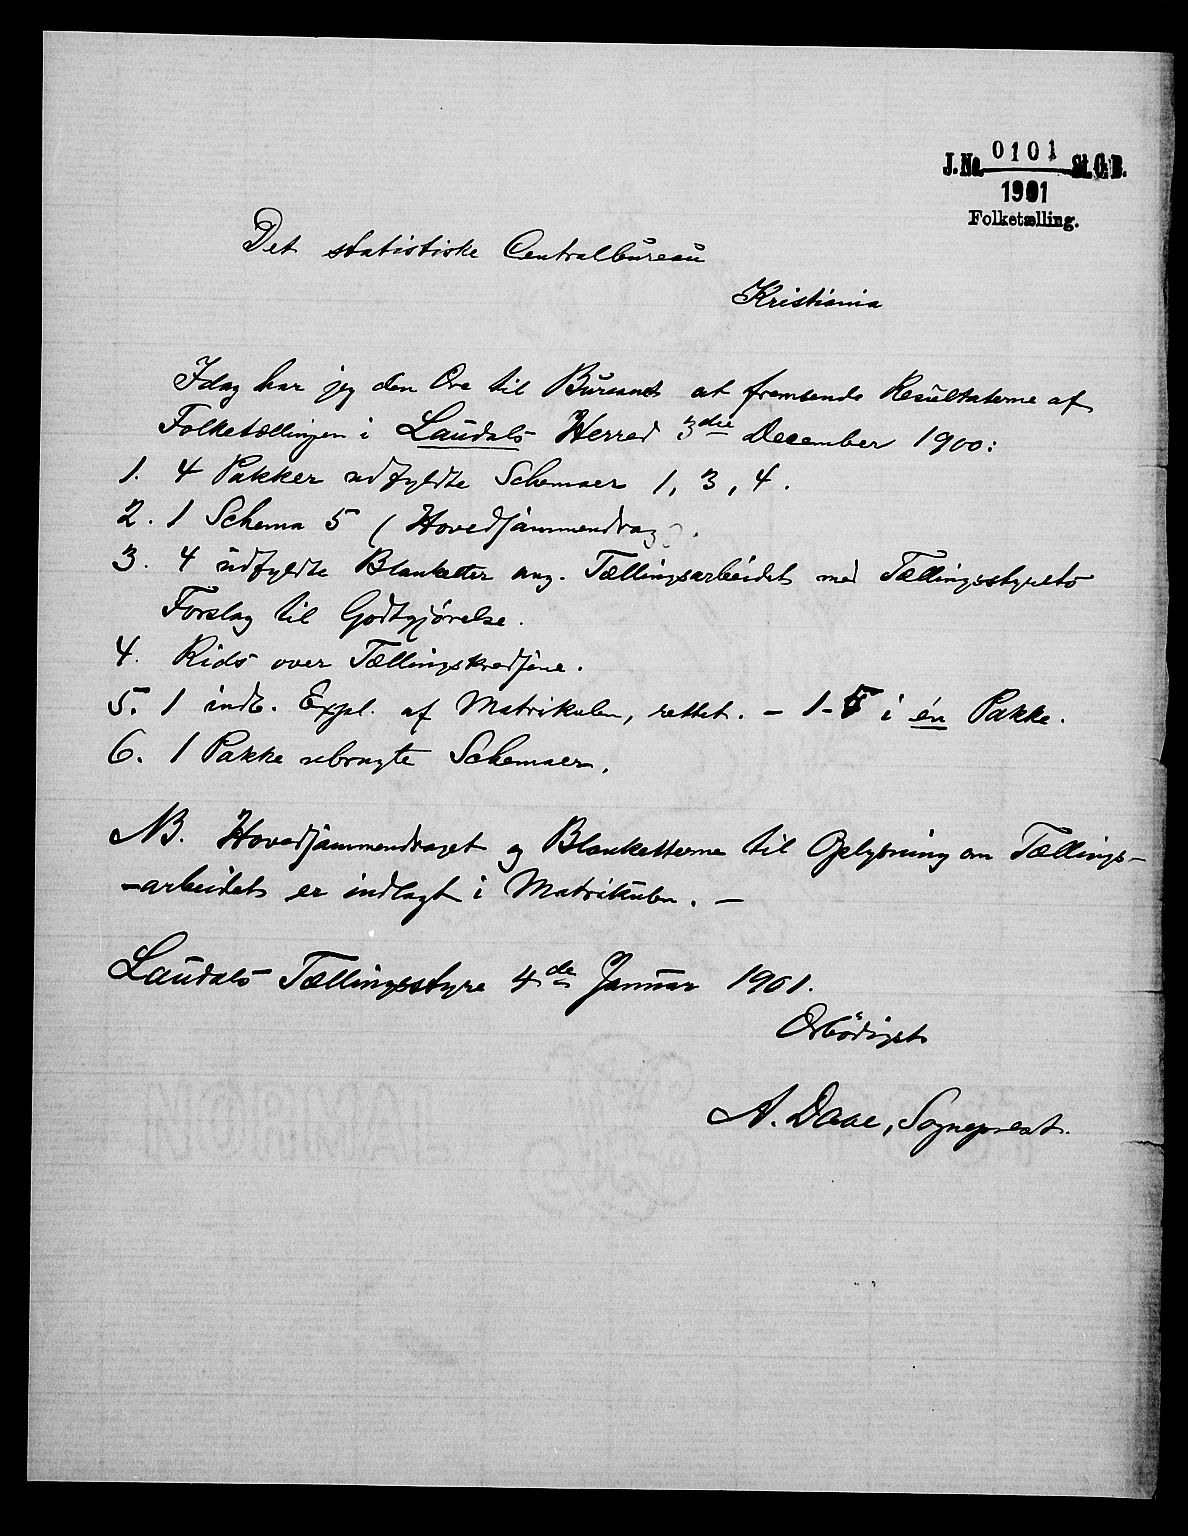 J. No. 0101 St. C. B.
1901
Folketælling.
Det statistiske Centralbureau
Kristiania
Idag har jeg den Ære til Bureauet at fremsende Resultaterne af
Folketællingen i Laudals Herred 3die December 1900:
1. 4 Pakker udfyldte Schemaer 1, 3, 4.
2. 1 Schema 5 (Hovedsammendrag).
3. 4 udfyldte Blanketter ang. Tællingsarbeidet med Tællingsstyrets
Forslag til Godtgjørelse.
4. Rids over Tællingskredsene.
5. 1 indb. Expl. af Matrikulen, rettet. – 1-5 i én Pakke.
6. 1 Pakke ubrugte Schemaer.
NB. Hovedsammendraget og Blanketterne til Oplysning om Tællings-
-arbeidet er indlagt i Matrikulen. –
Laudals Tællingsstyre 4de Januar 1901.
Ærbödigst
A. Daae, Sogneprest.